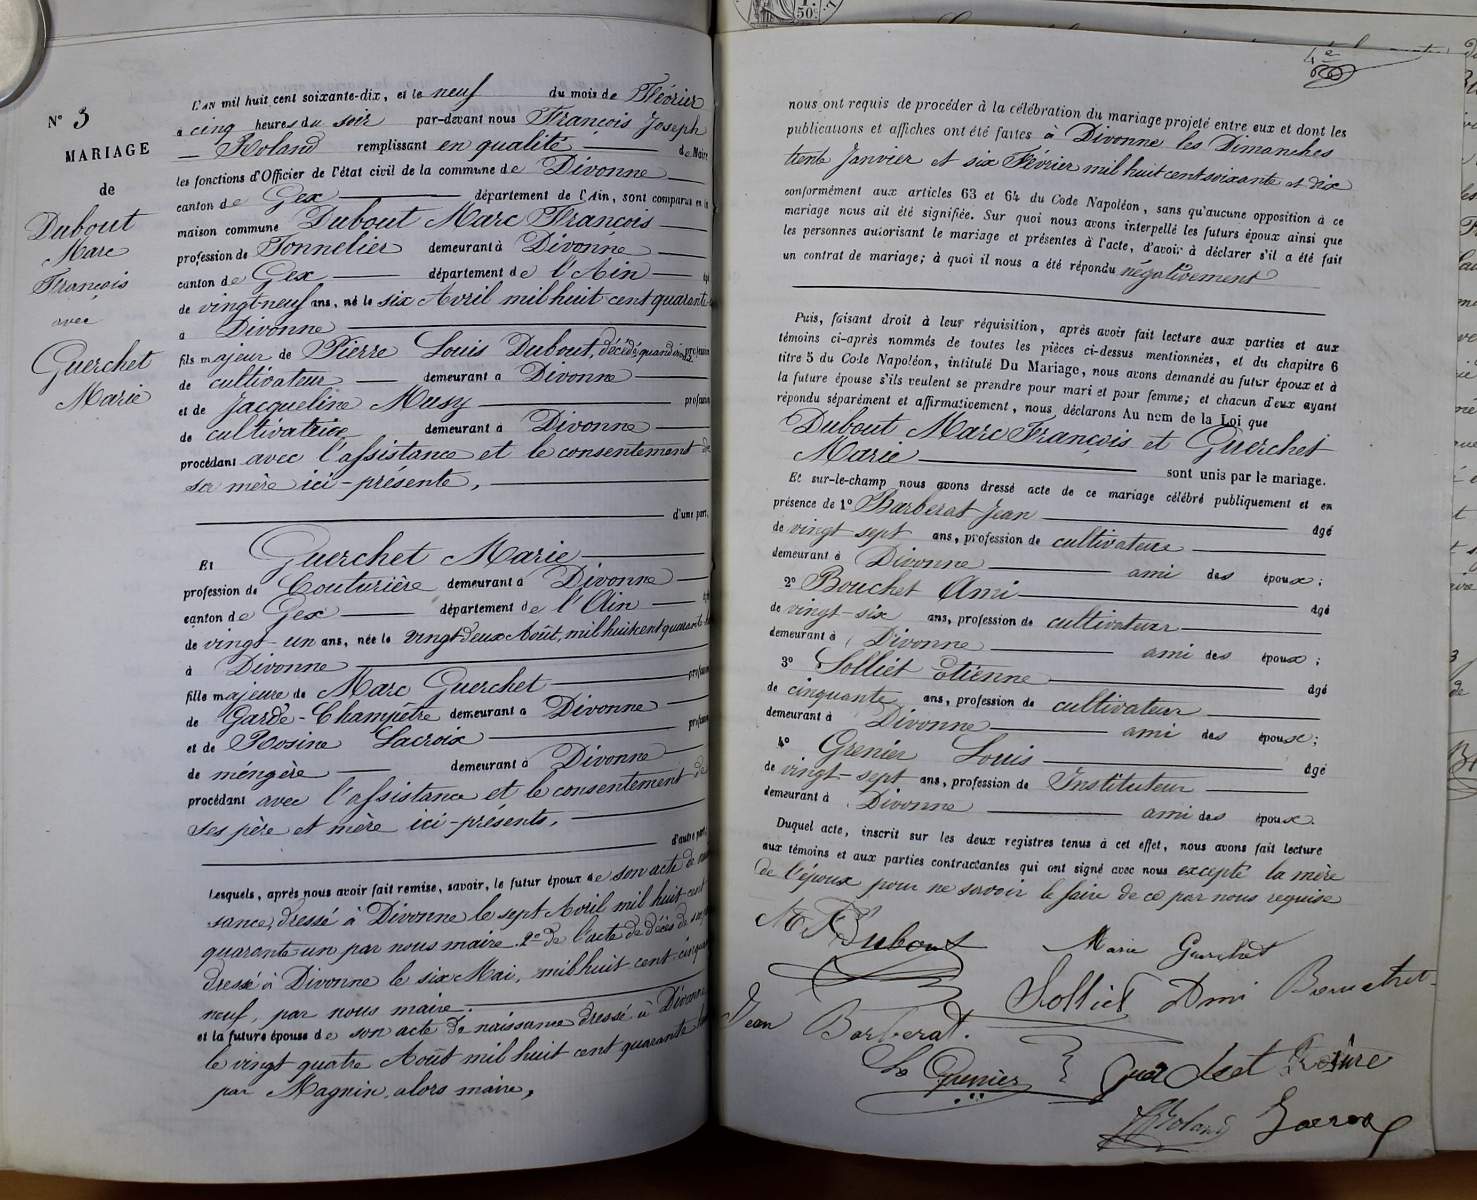 N° 3
MARIAGE
de
Dubout
Marc
François
avec
Guerchet
Marie
L'AN mil huit cent soixante-dix, et le neuf du mois de Février
à cinq heures du soir par-devant nous François Joseph
Roland remplissant en qualité de Maire
les fonctions d'Officier de l'état civil de la commune de Divonne
canton de Gex département de l'Ain, sont comparus en la
maison commune Dubout Marc François
profession de Tonnelier demeurant à Divonne
canton de Gex département de l'Ain
de vingt neuf ans, né le six Avril mil huit cent quarante
à Divonne
fils majeur de Pierre Louis Dubout, décédé, quand vivait profession
de cultivateur demeurant à Divonne
et de Jacqueline Musy profession
de cultivatrice demeurant à Divonne
procédant avec l'assistance et le consentement de
sa mère ici-présente,
d'une part,
Et Guerchet Marie
profession de Couturière demeurant à Divonne
canton de Gex département de l'Ain
de vingt-un ans, née le vingt deux Août, mil huit cent quarante
à Divonne
fille majeure de Marc Guerchet profession
de Garde-Champêtre demeurant à Divonne
et de Rosine Lacroix profession
de méngère demeurant à Divonne
procédant avec l'assistance et le consentement de
ses père et mère ici-présents,
d'autre part,
Lesquels, après nous avoir fait remise, savoir, le futur époux de son acte de nais
sance, dressé à Divonne le sept Avril mil huit cent
quarante un par nous maire. 2° de l'acte de décès de son
dressé à Divonne le six Mai, mil huit cent cinquante
neuf, par nous maire.
et la future épouse de son acte de naissance dressé à Divonne
le vingt quatre Août mil huit cent quarante
par Magnin, alors maire,
4e
nous ont requis de procéder à la célébration du mariage projeté entre eux et dont les
publications et affiches ont été faites à Divonne les Dimanches
trente Janvier et six Février mil huit cent soixante et dix
conformément aux articles 63 et 64 du Code Napoléon, sans qu'aucune opposition à ce
mariage nous ait été signifiée. Sur quoi nous avons interpellé les futurs époux ainsi que
les personnes autorisant le mariage et présentes à l'acte, d'avoir à déclarer s'il a été fait
un contrat de mariage; à quoi il nous a été répondu négativement
Puis, faisant droit à leur réquisition, après avoir fait lecture aux parties et aux
témoins ci-après nommés de toutes les pièces ci-dessus mentionnées, et du chapitre 6
titre 5 du Code Napoléon, intitulé Du Mariage, nous avons demandé au futur époux et à
la future épouse s'ils veulent se prendre pour mari et pour femme; et chacun d'eux ayant
répondu séparément et affirmativement, nous déclarons Au nom de la Loi que
Dubout Marc François et Guerchet
Marie sont unis par le mariage.
Et sur-le-champ nous avons dressé acte de ce mariage célébré publiquement et en
présence de 1° Barberat Jean âgé
de vingt sept ans, profession de cultivateur
demeurant à Divonne ami des époux;
2° Bouchet Ami âgé
de vingt-six ans, profession de cultivateur
demeurant à Divonne ami des époux;
3° Solliet Etienne âgé
de cinquante ans, profession de cultivateur
demeurant à Divonne ami des époux;
4° Grenier Louis âgé
de vingt-sept ans, profession de Instituteur
demeurant à Divonne ami des époux.
Duquel acte, inscrit sur les deux registres tenus à cet effet, nous avons fait lecture
aux témoins et aux parties contractantes qui ont signé avec nous excepté la mère
de l'époux pour ne savoir le faire de ce par nous requise
M F Dubout Marie Guerchet
Solliet Ami Bouchet
Jean Barberat.
Ls Grenier Guerchet Rosine
Roland Lacroix